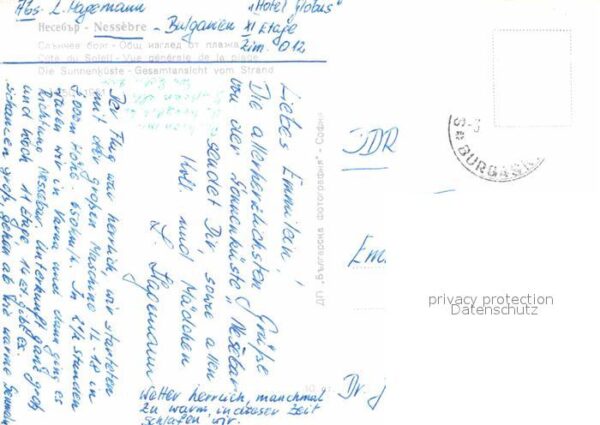 Abs. L. Hagemann "Hotel Globus"
Несебър - Nessèbre - Bulgarien XI Etage
Слънчев бряг - Общ изглед от плажа Zim. 012
Côte du Soleil - Vue générale de la plage
Die Sonnenküste - Gesamtansicht vom Strand
Liebes Emmilein,
Die allerherzlichsten Grüße
von der Sonnenküste "Nessebar"
sendet Dir sowie allen
Koll. und Mädchen
L. Hagemann
Der Flug war herrlich, wir starteten
mit der großen Maschine IL-18 in
8.000m Höhe 650km/h. In 2½ Stunden
waren wir in Varna und dann ging es
Richtung Nessebar. Unterkunft ganz groß
und hoch 11 Etage
schauen groß, gehen ab
warme
Wetter herrlich, manchmal
zu warm, in dieser Zeit
schlafen wir.
ДП „Българска фотография" - София
DDR
Em
Dr. J
BURGAS
privacy protection
Datenschutz